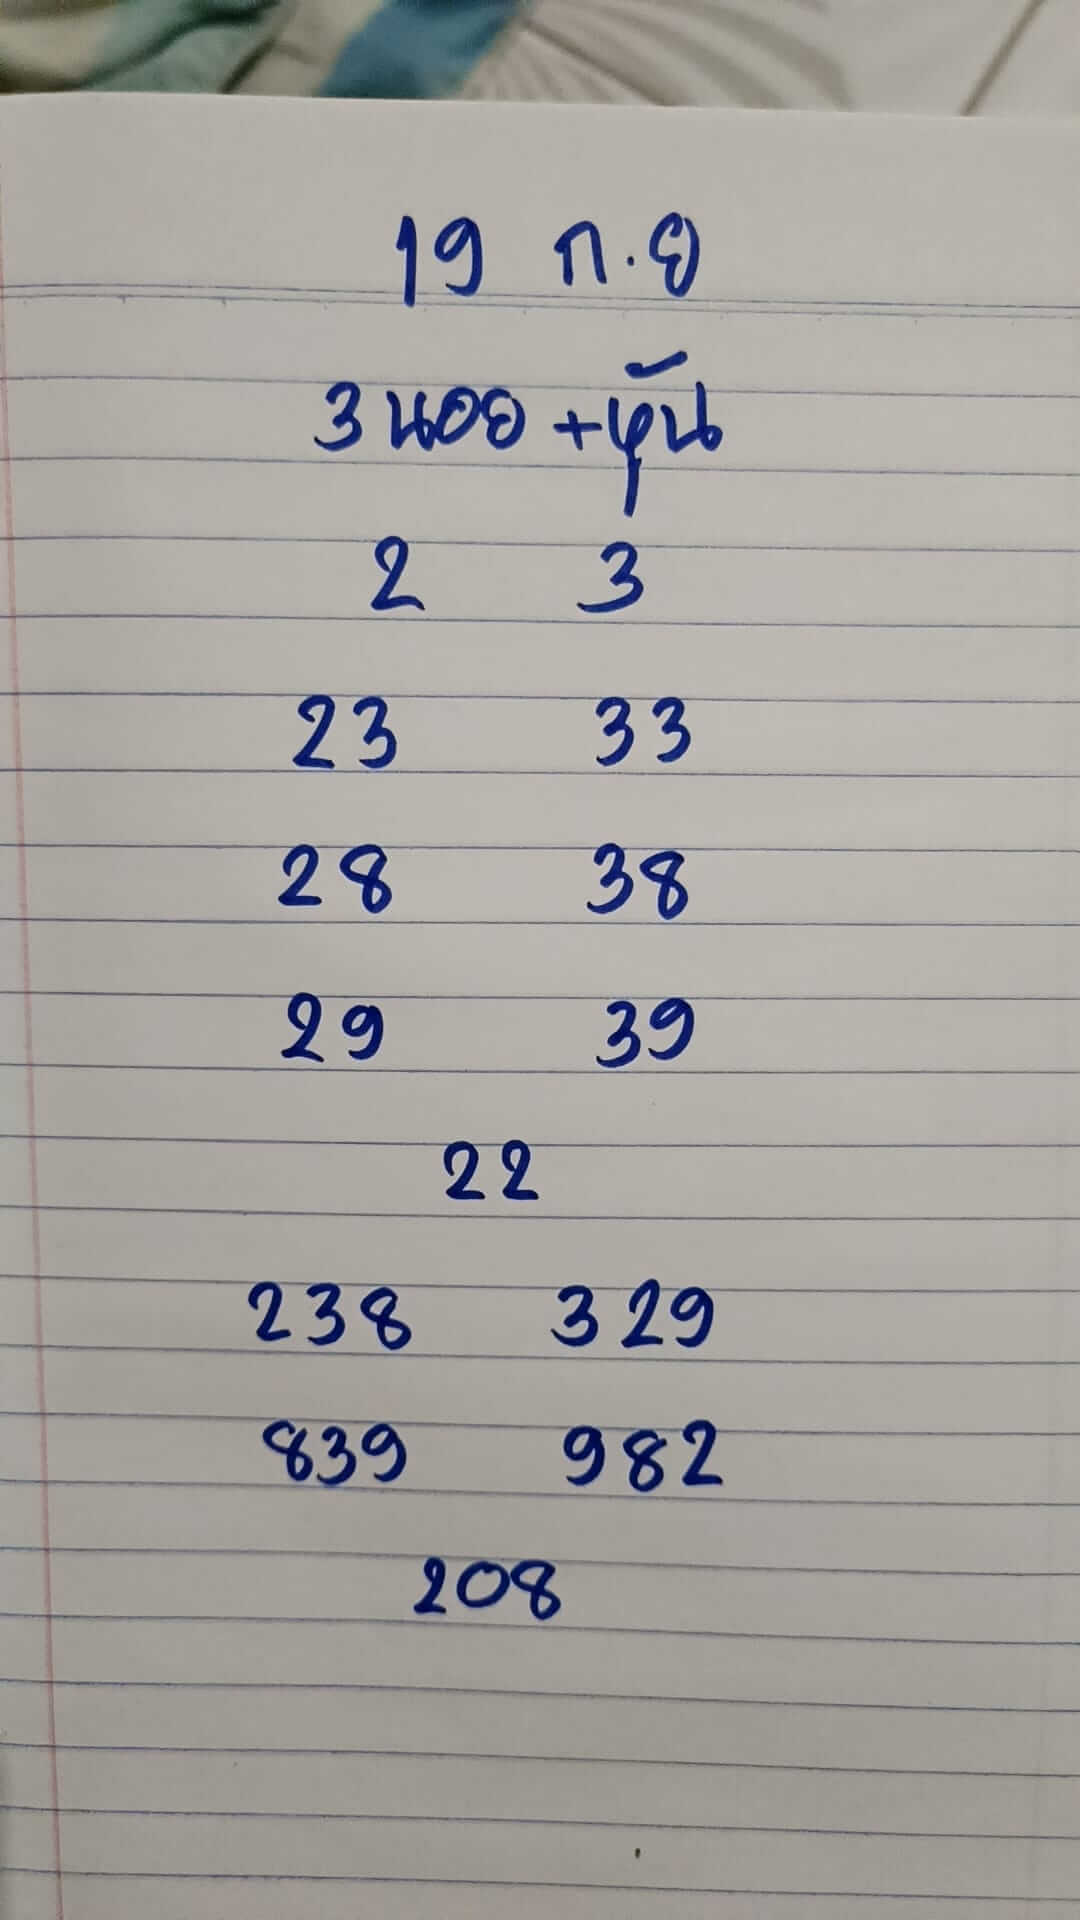 19 ก.ย
3 นอย + หุ้น
2 3
23 33
28 38
29 39
22
238 329
839 982
208